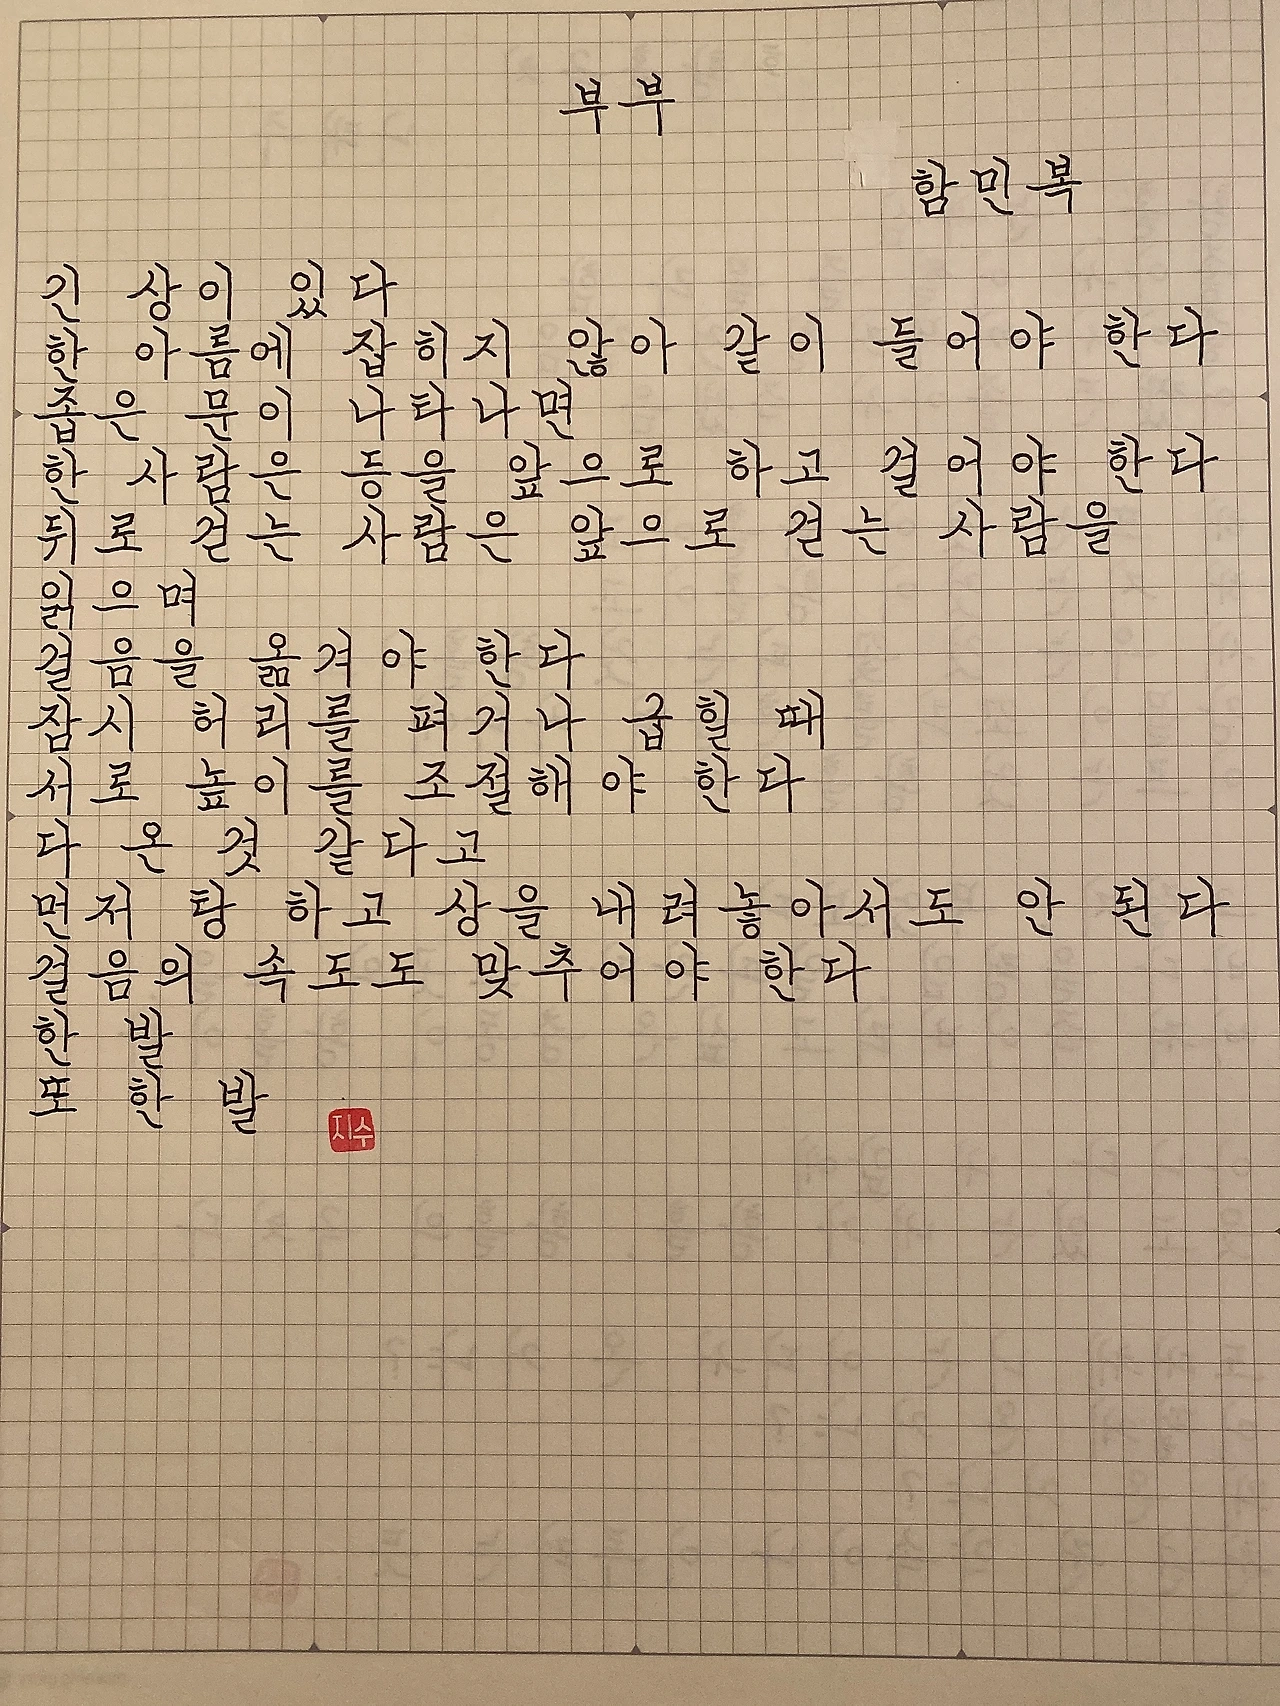 부부
함민복
긴 상이 있다
한 아름에 잡히지 않아 같이 들어야 한다
좁은 문이 나타나면
한 사람은 등을 앞으로 하고 걸어야 한다
뒤로 걷는 사람은 앞으로 걷는 사람을
읽으며
걸음을 옮겨야 한다
잠시 허리를 펴거나 급힐 때
서로 높이를 조절해야 한다
다 온 것 같다고
먼저 탕 하고 상을 내려놓아서도 안 된다
걸음의 속도도 맞추어야 한다
한 발
또 한 발
지수